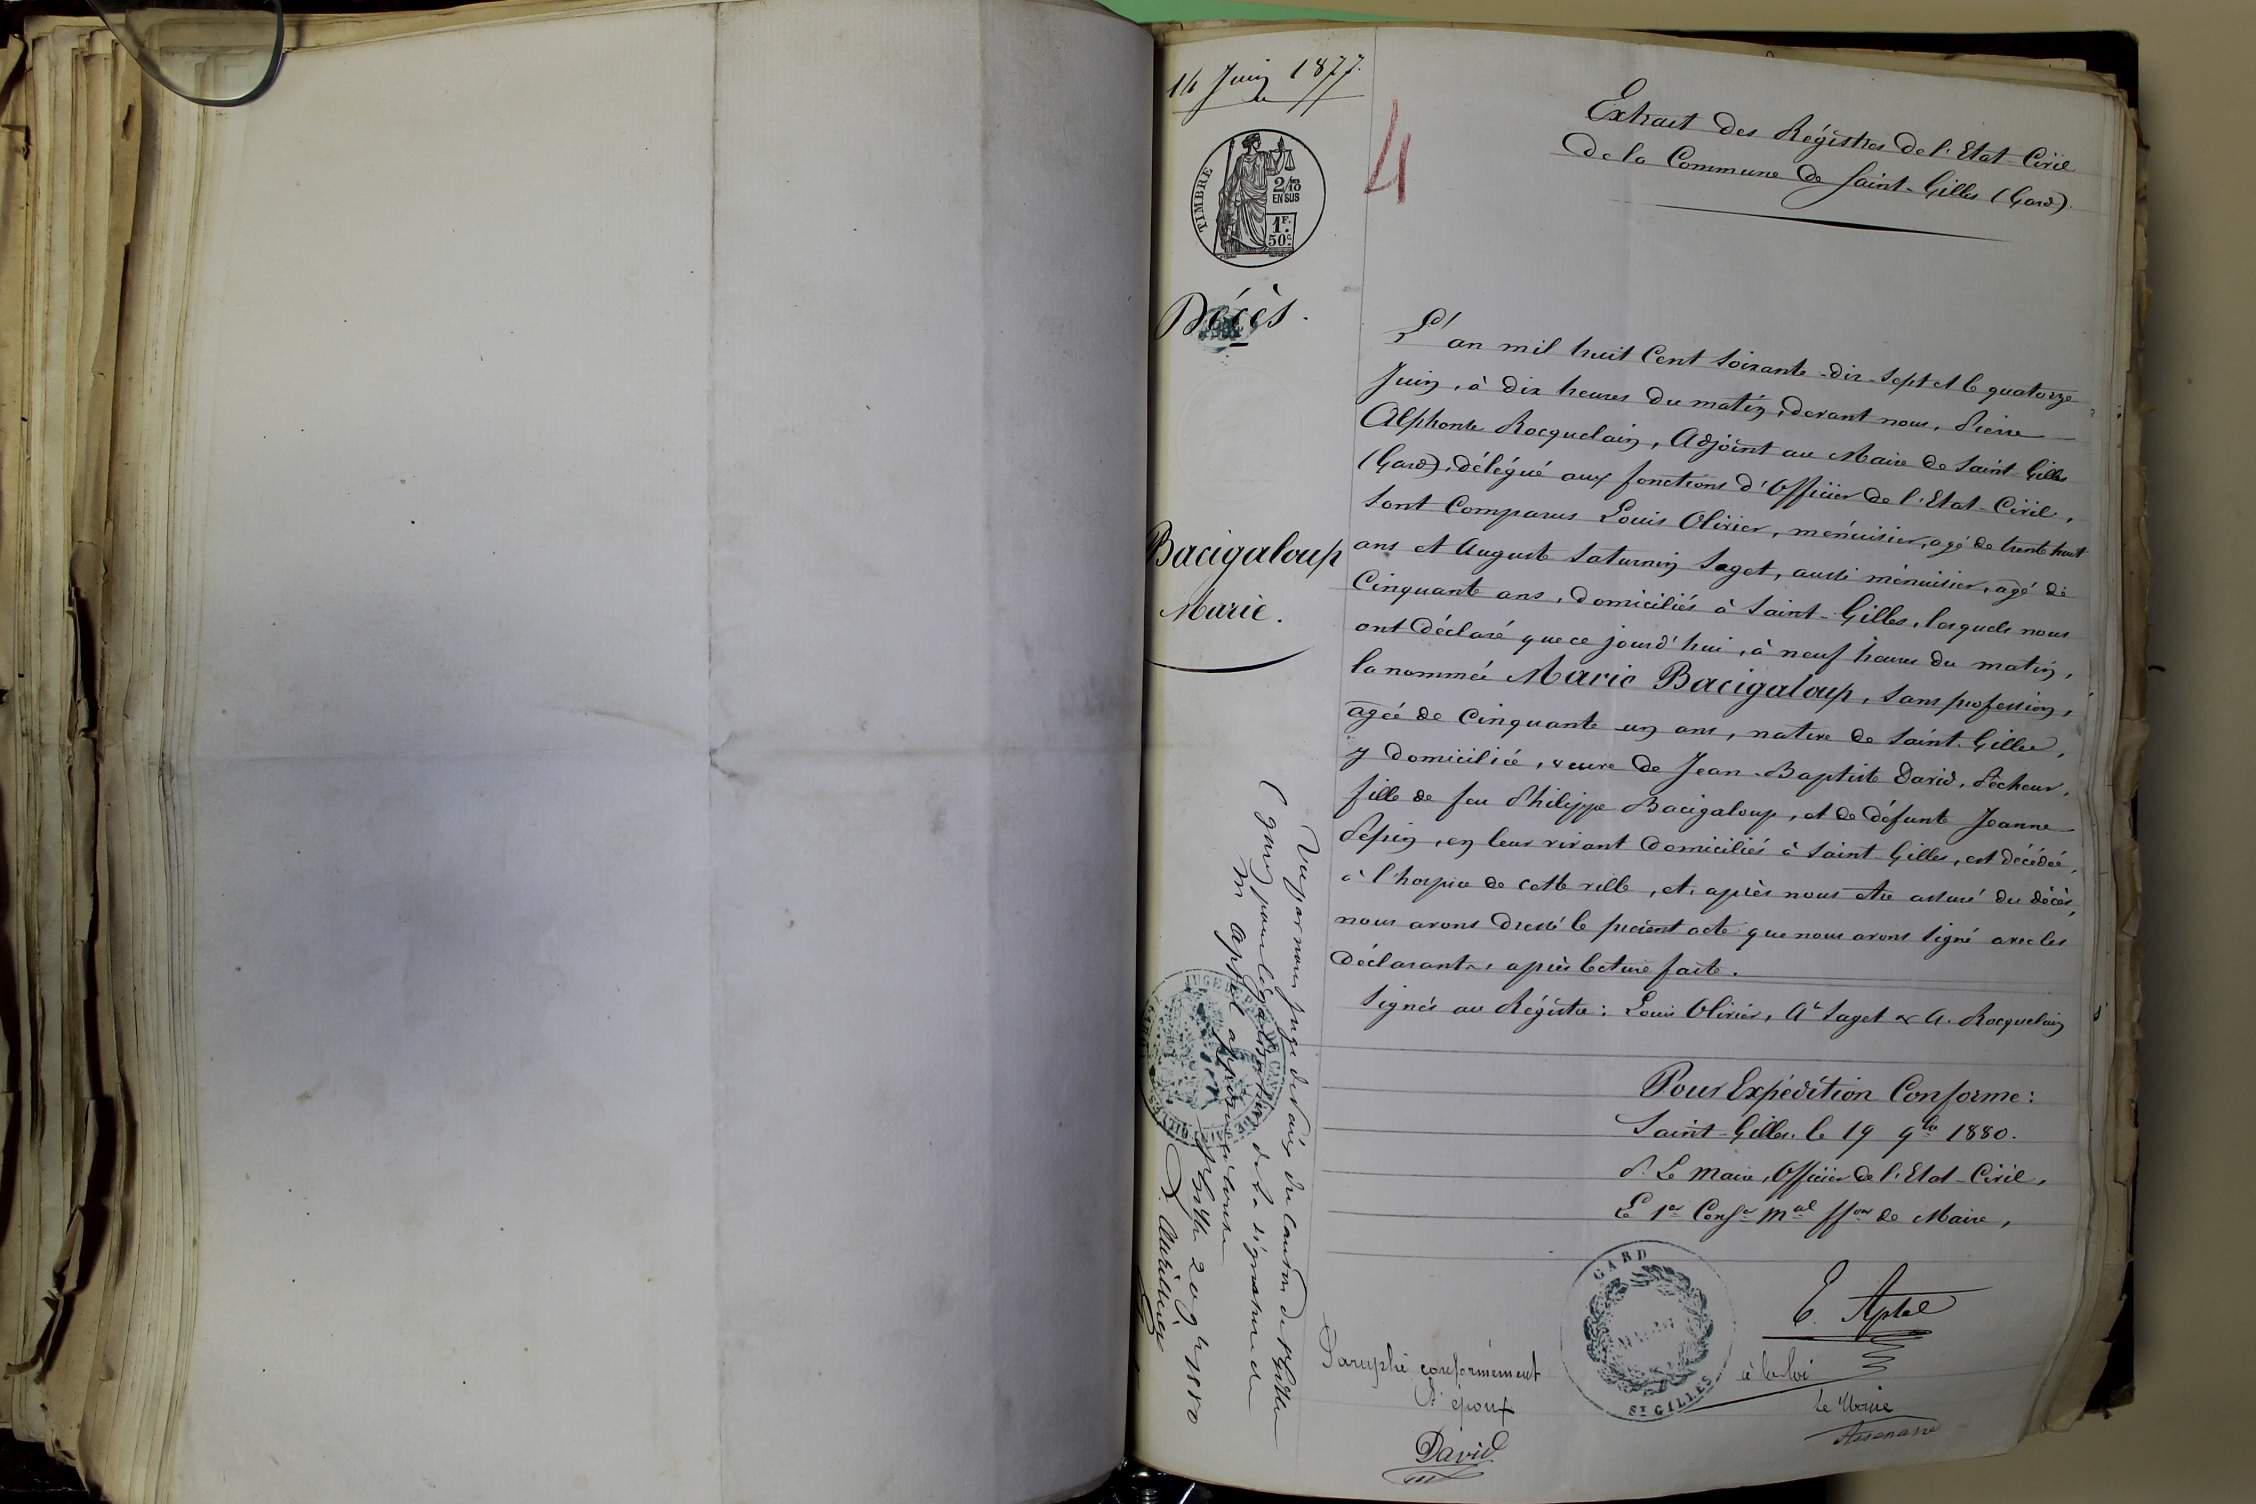 14 Juin 1877.
TIMBRE
2/10
EN SUS
1F.
50c.
4
Décès.
Bacigaloup
Marie.
Extrait des Régistres de l'Etat-Civil
de la Commune de Saint-Gilles (Gard).
L'an mil huit Cent soixante-dix-sept et le quatorze
Juin, à dix heures du matin, devant nous, Pierre
Alphonse Rocquelain, Adjoint au Maire de Saint-Gilles
(Gard), délégué aux fonctions d'Officier de l'Etat-Civil,
sont Comparus Louis Olivier, ménuisier, agé de trente huit
ans et Auguste Saturnin Saget, aussi ménuisier, agé de
Cinquante ans, domiciliés à Saint-Gilles, lesquels nous
ont déclaré que ce jourd'hui, à neuf heures du matin,
la nommée Marie Bacigaloup, sans profession,
agée de Cinquante-un ans, native de Saint-Gilles,
y domiciliée, veuve de Jean-Baptiste David, Pêcheur,
fille de feu Philippe Bacigaloup, et de défunte Jeanne
Pépin, en leur vivant domiciliés à Saint-Gilles, est décédée,
à l'hospice de cette ville, et, après nous être assuré du décès,
nous avons dressé le présent acte que nous avons signé avec les
déclarants, après lecture faite.
Signés au Régistre: Louis Olivier, Ate Saget & A. Rocquelain
Pour Expédition Conforme:
Saint-Gilles, le 19 9bre 1880.
P. Le Maire, Officier de l'Etat-Civil,
Le 1er Conser Mal ffons de Maire,
E. Aptel
GARD
ST GILLES
Vu par nous Juge de Paix du Canton de St Gilles
(Gard) pour légalisation de la signature de
M Aptel apposée ci contre
St Gilles 20 9bre 1880
Paraphé conformément
à la loi
L'époux
Le Maire
David